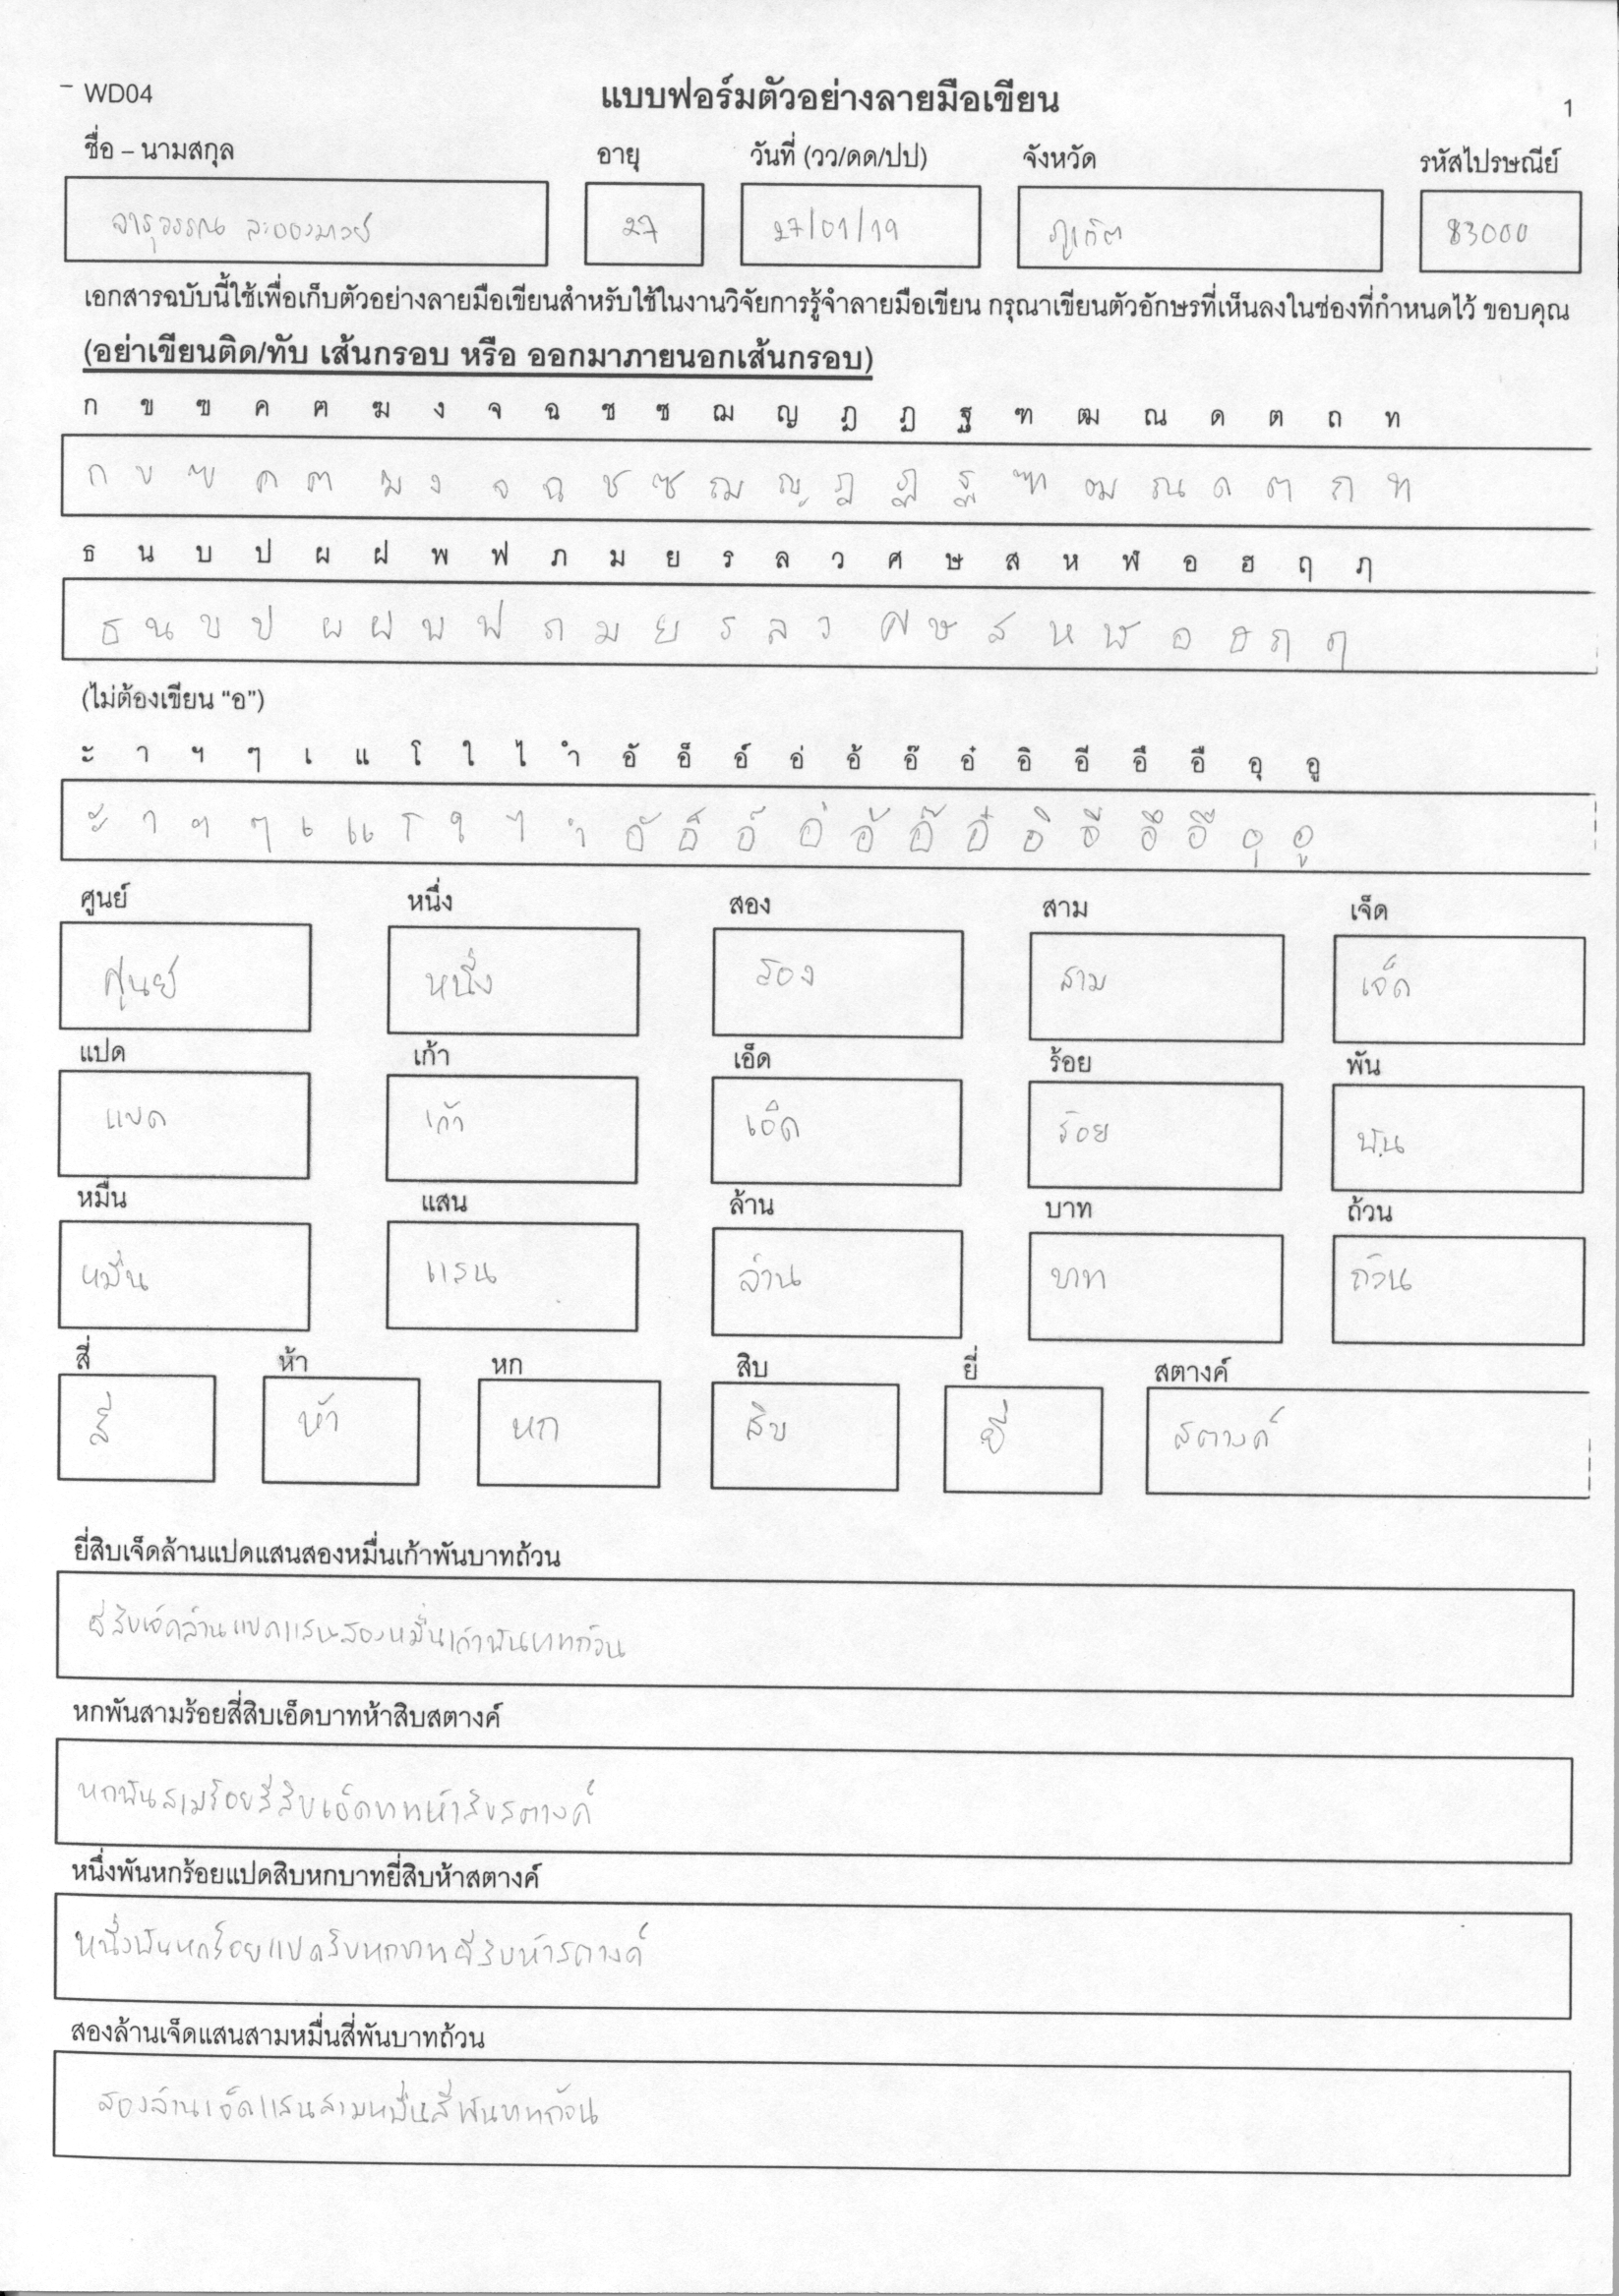 WD04
แบบฟอร์มตัวอย่างลายมือเขียน
1
ชื่อ – นามสกุล อายุ วันที่ (วว/ดด/ปป) จังหวัด รหัสไปรษณีย์
จารุวรรณ 27 27/01/19 ภูเก็ต 83000
เอกสารฉบับนี้ใช้เพื่อเก็บตัวอย่างลายมือเขียนสำหรับใช้ในงานวิจัยการรู้จำลายมือเขียน กรุณาเขียนตัวอักษรที่เห็นลงในช่องที่กำหนดไว้ ขอบคุณ
(อย่าเขียนติด/ทับ เส้นกรอบ หรือ ออกมาภายนอกเส้นกรอบ)
ก ข ฃ ค ฅ ฆ ง จ ฉ ช ซ ฌ ญ ฎ ฏ ฐ ฑ ฒ ณ ด ต ถ ท
ก ข ฃ ค ฅ ฆ ง จ ฉ ช ซ ฌ ญ ฎ ฏ ฐ ฑ ฒ ณ ด ต ถ ท
ธ น บ ป ผ ฝ พ ฟ ภ ม ย ร ล ว ศ ษ ส ห ฬ อ ฮ ฤ ฦ
ธ น บ ป ผ ฝ พ ฟ ภ ม ย ร ล ว ศ ษ ส ห ฬ อ ฮ ฤ ฦ
(ไม่ต้องเขียน “อ”)
ะ า ฯ ๆ เ แ โ ใ ไ ำ อั อ็ อ์ อ่ อ้ อ๊ อ๋ อิ อี อึ อื อุ อู
ะ า ฯ ๆ เ แ โ ใ ไ ำ อั อ็ อ์ อ่ อ้ อ๊ อ๋ อิ อี อึ อื อุ อู
ศูนย์ หนึ่ง สอง สาม เจ็ด
ศูนย์ หนึ่ง สอง สาม เจ็ด
แปด เก้า เอ็ด ร้อย พัน
แปด เก้า เอ็ด ร้อย พัน
หมื่น แสน ล้าน บาท ถ้วน
หมื่น แสน ล้าน บาท ถ้วน
สี่ ห้า หก สิบ ยี่ สตางค์
สี่ ห้า หก สิบ ยี่ สตางค์
ยี่สิบเจ็ดล้านแปดแสนสองหมื่นเก้าพันบาทถ้วน
ยี่สิบเจ็ดล้านแปดแสนสองหมื่นเก้าพันบาทถ้วน
หกพันสามร้อยสี่สิบเอ็ดบาทห้าสิบสตางค์
หกพันสามร้อยสี่สิบเอ็ดบาทห้าสิบสตางค์
หนึ่งพันหกร้อยแปดสิบหกบาทยี่สิบห้าสตางค์
หนึ่งพันหกร้อยแปดสิบหกบาทยี่สิบห้าสตางค์
สองล้านเจ็ดแสนสามหมื่นสี่พันบาทถ้วน
สองล้านเจ็ดแสนสามหมื่นสี่พันบาทถ้วน